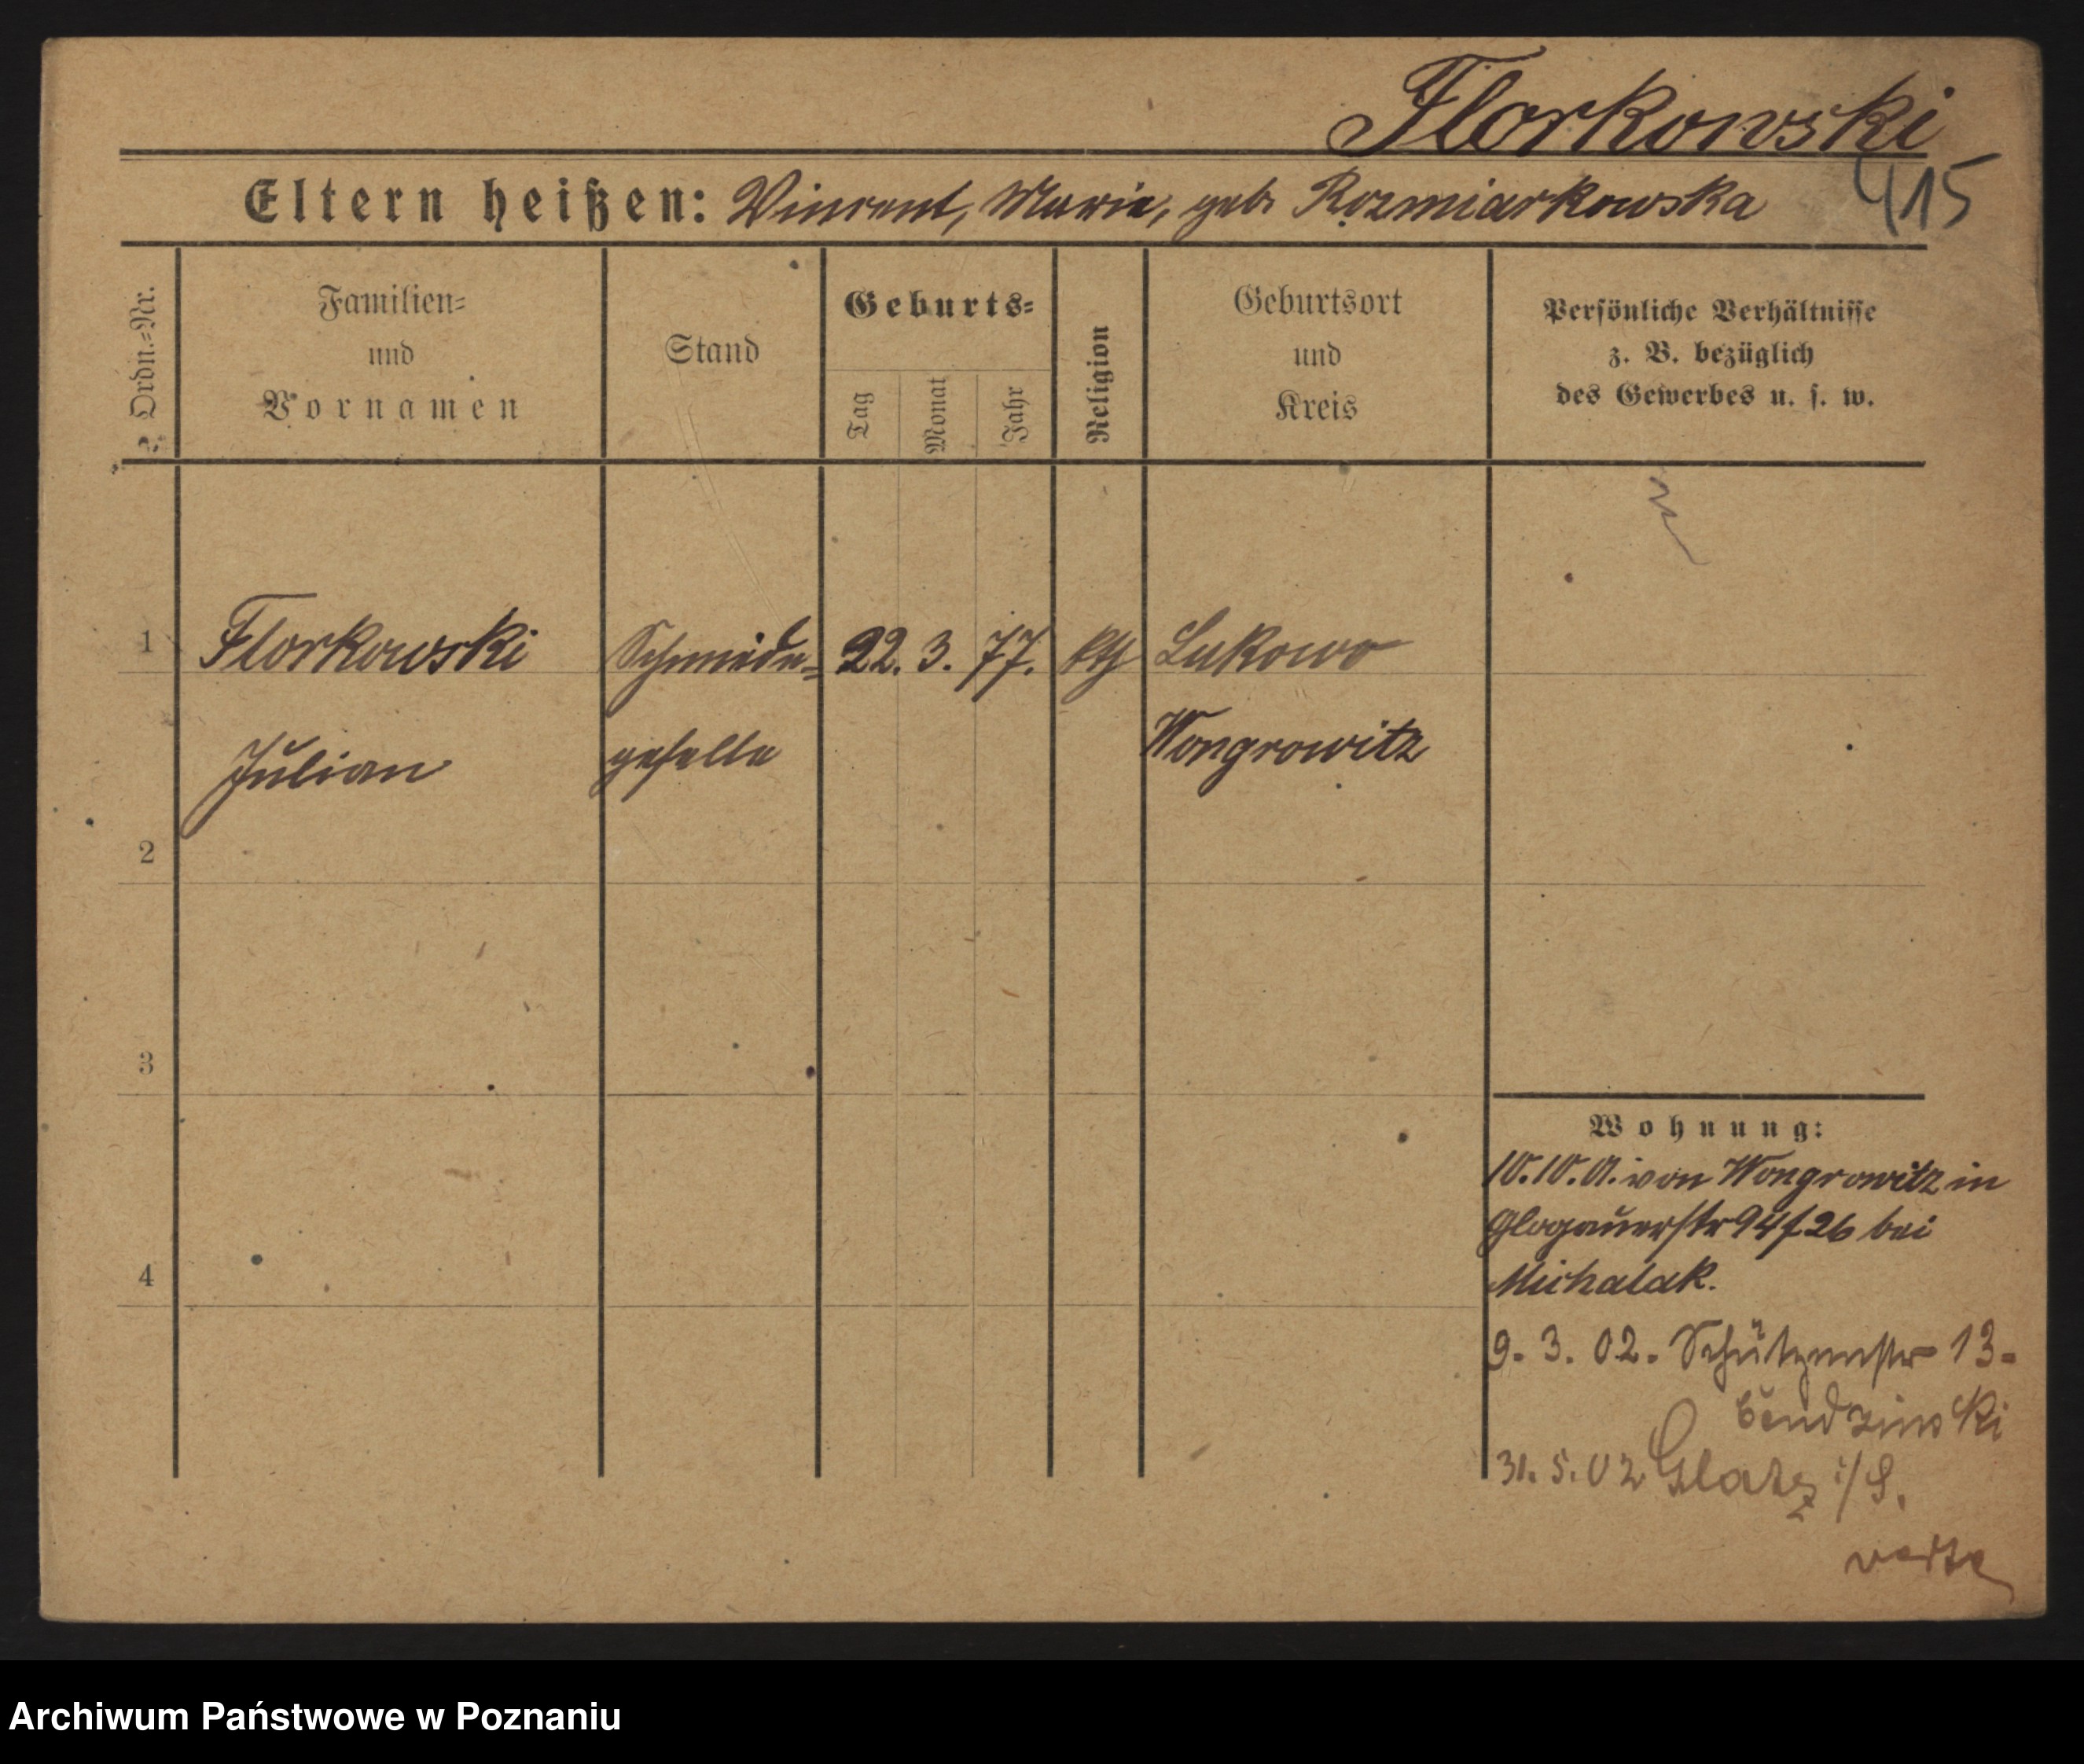 Florkowski
415
Eltern heißen: Vincent, Marie, geb. Rozmiarkowska
Ordn.-Nr.
Familien-
und
Vornamen
Stand
Geburts-
Tag
Monat
Jahr
Religion
Geburtsort
und
Kreis
Persönliche Verhältnisse
z. B. bezüglich
des Gewerbes u. s. w.
1 Florkowski Schmiede- 22. 3. 77. kth Lukowo
Julian geselle Wongrowitz
2
3
4
Wohnung:
10. 10. 01. von Wongrowitz in
Glogauerstr 94 f 26 bei
Michalak.
9. 3. 02. Schützenstr 13-
Bendzinski
31. 5. 02 Glatz i/S.
verte
Archiwum Państwowe w Poznaniu